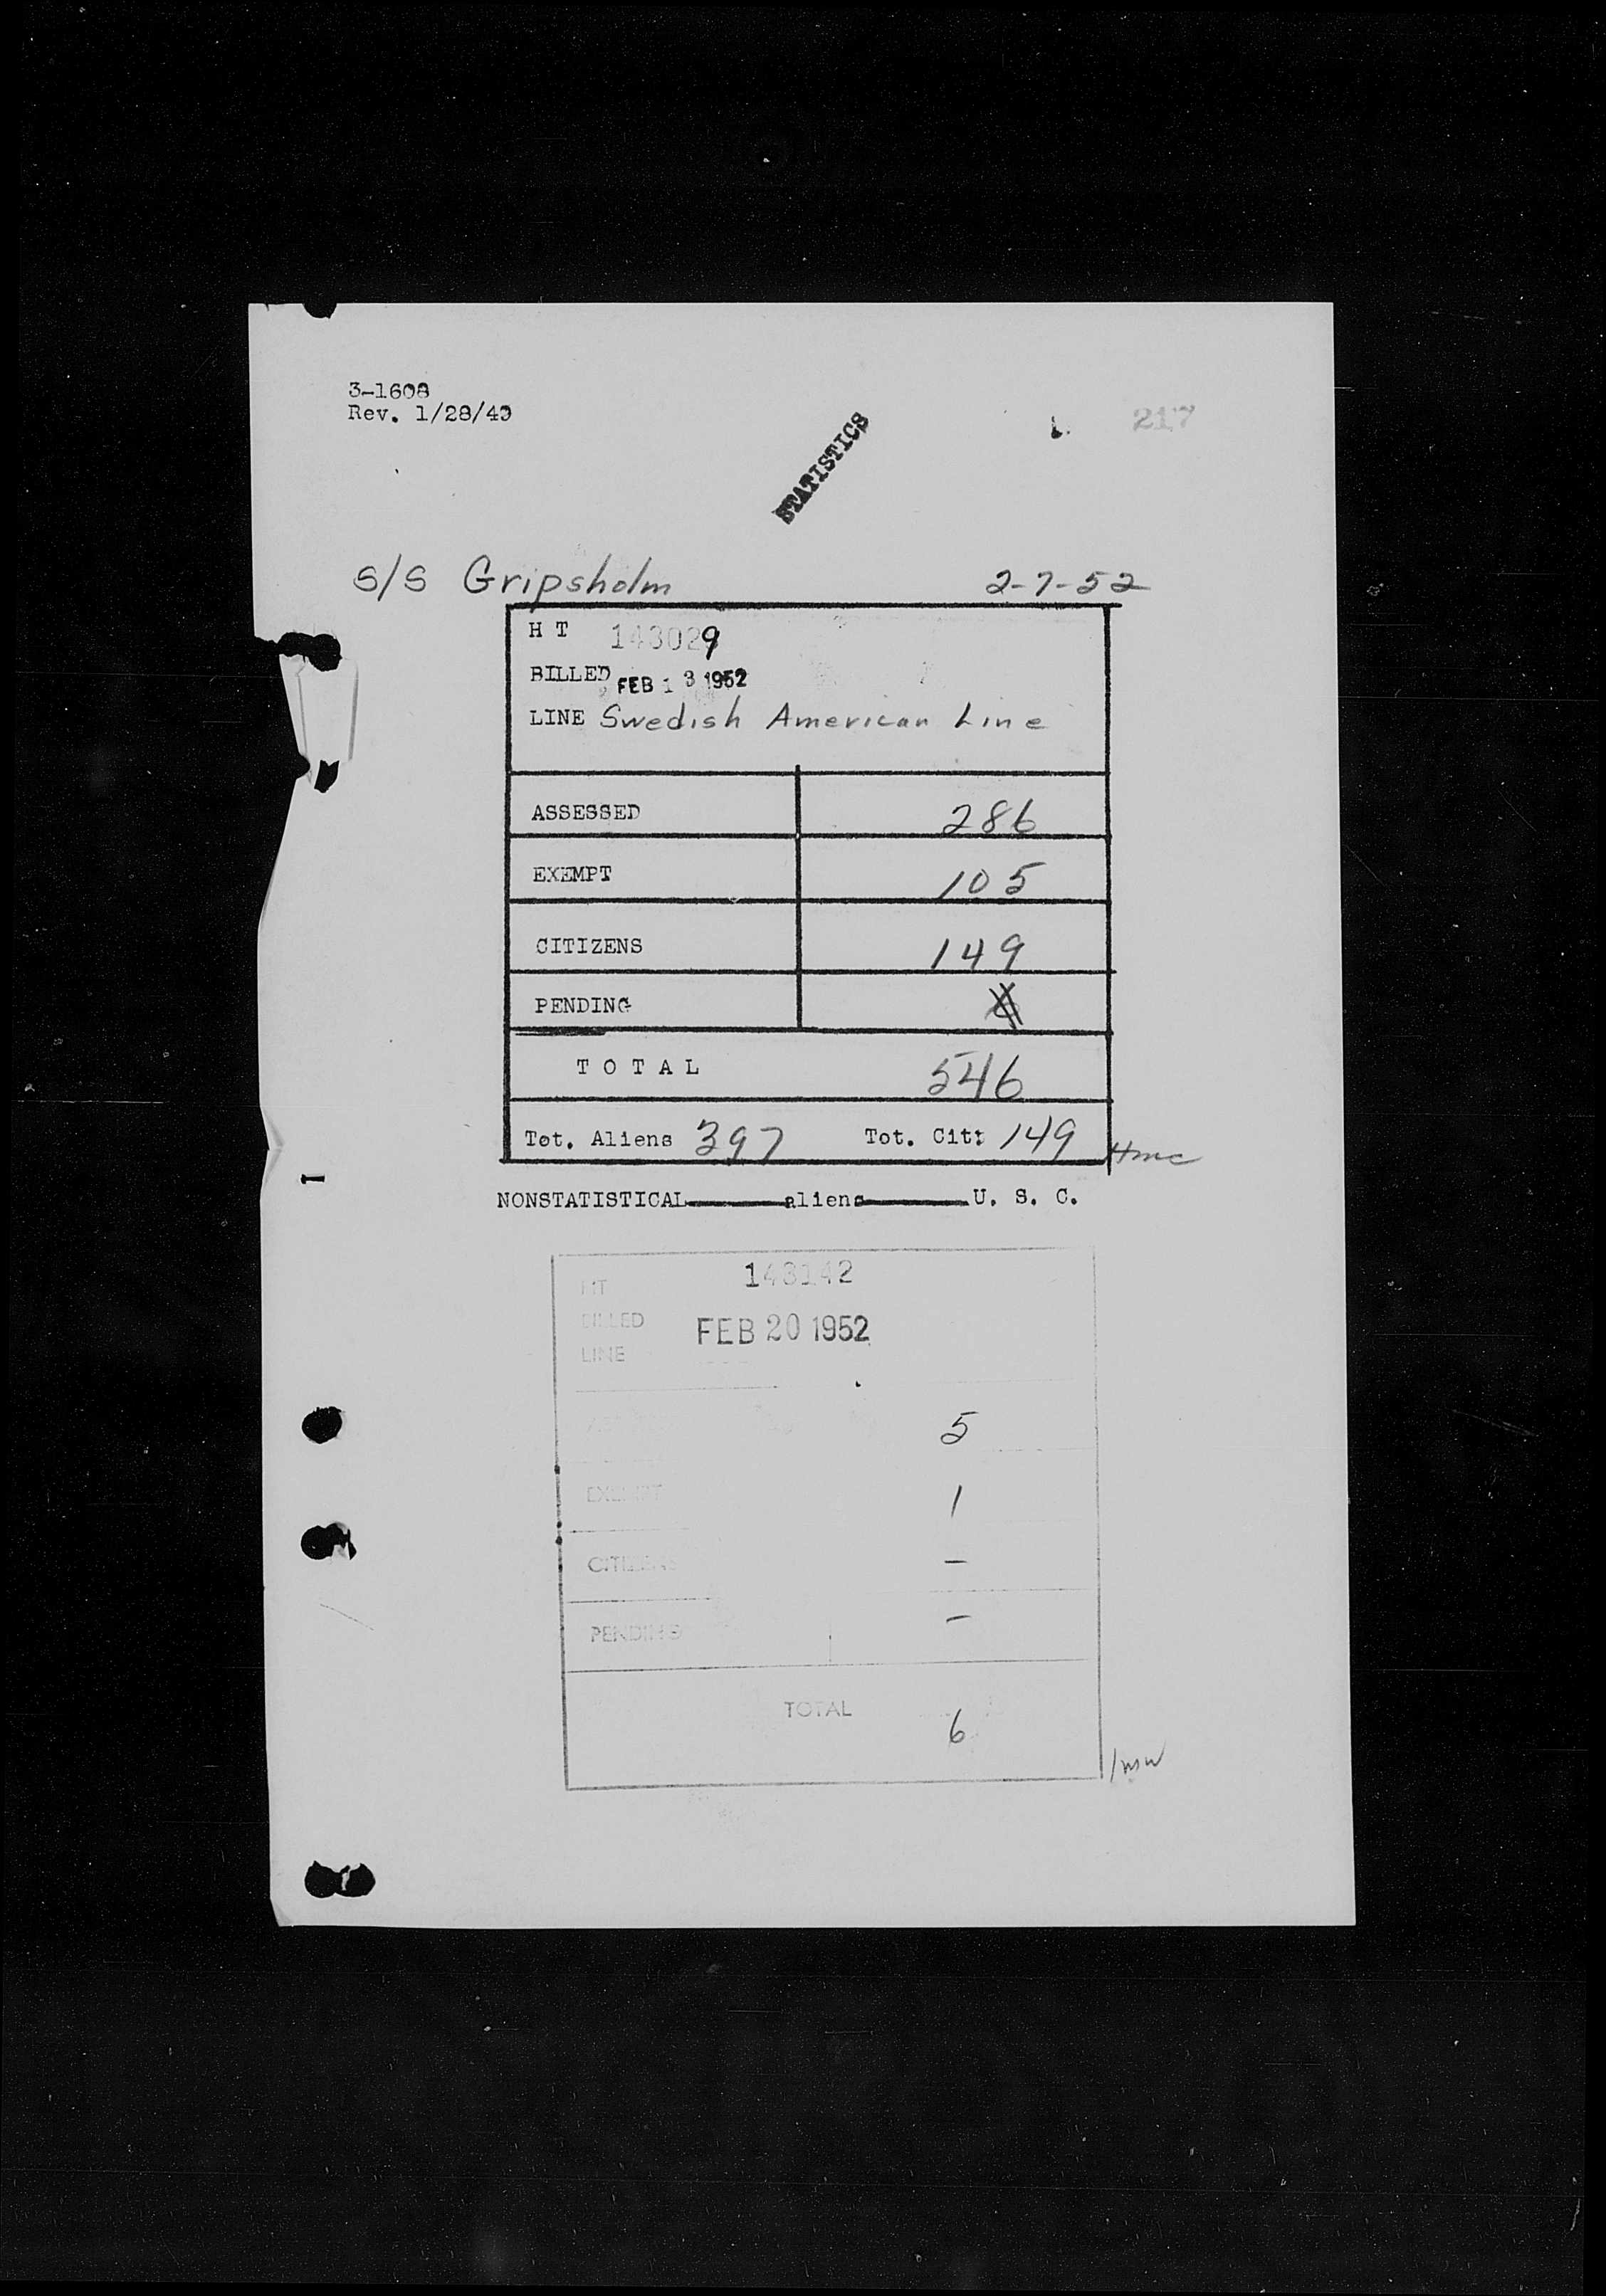 3-1608
Rev. 1/28/49
217
STATISTICS
S/S Gripsholm 2-7-52
H T 143029
BILLED FEB 13 1952
LINE Swedish American Line
ASSESSED 286
EXEMPT 105
CITIZENS 149
PENDING
T O T A L 546
Tot. Aliens 397 Tot. Cit: 149 Hmc
NONSTATISTICAL aliens U. S. C.
HT 143142
BILLED FEB 20 1952
LINE
5
EXEMPT 1
CITIZENS —
PENDING —
TOTAL 6